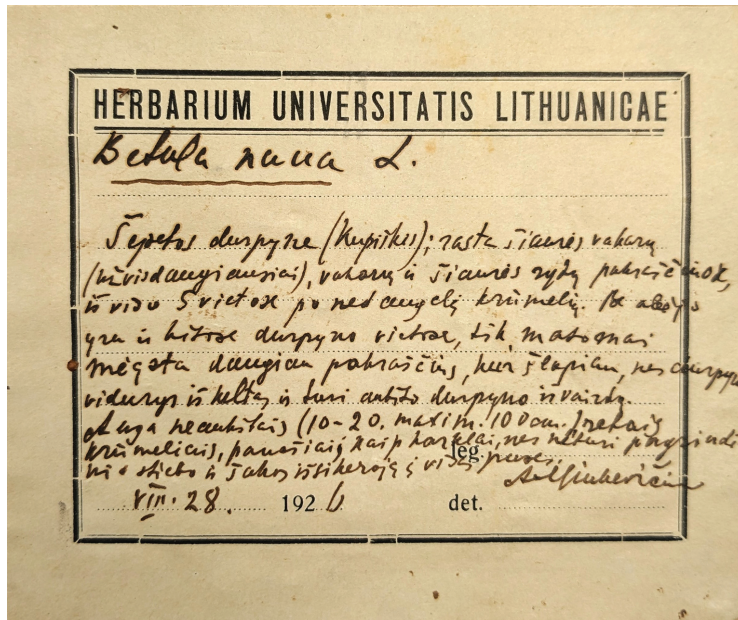 HERBARIUM UNIVERSITATIS LITHUANICAE
Betula nana L.
Šepetos durpyne (Kupiškis); rasta šiaurės vakarų
(užvis daugiausiai), vakarų ir šiaurės rytų pakraščiuose,
iš viso 5 vietose po nedaugelį krūmelių. Be abejo
yra ir kitose durpyno vietose, tik, matomai
mėgsta daugiau pakraščius, kur šlapiau, nes durpyno
vidurys iškeltas ir turi aukšto durpyno išvaizdą.
Auga neaukštais (10-20. maxim. 100 cm.) retais
krūmeliais, panašiais kaip karklai, nes neturi pagrindi
nio stiebo ir šakos išsikeroja į visas puses.
leg.
VIII. 28. 1926 det.